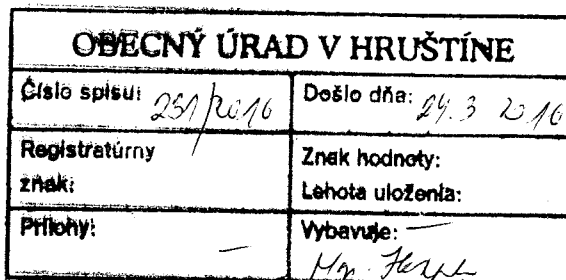 OBECNÝ ÚRAD V HRUŠTÍNE
Číslo spisu: 251/2016
Došlo dňa: 29.3 2016
Registratúrny
znak:
Znak hodnoty:
Lehota uloženia:
Prílohy: —
Vybavuje: —
Mgr.